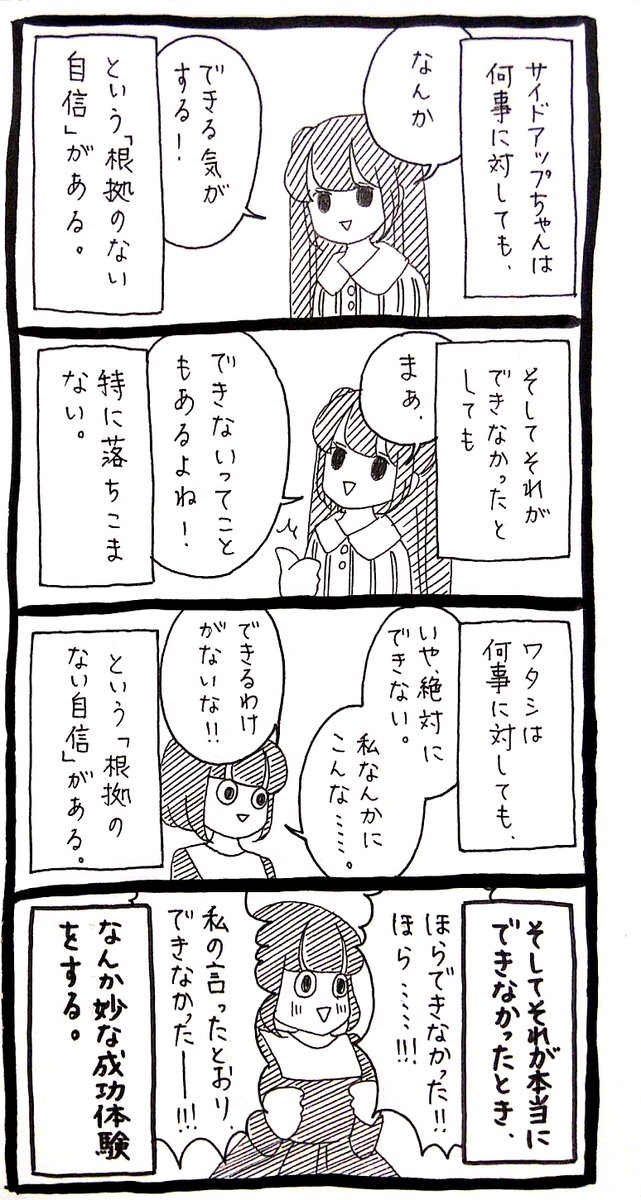 サイドアップちゃんは
何事に対しても、
なんか
できる気が
する！
という「根拠のない
自信」がある。
そしてそれが
できなかったと
しても
まぁ、
できないってこと
もあるよね！
特に落ちこま
ない。
ワタシは
何事に対しても、
いや、絶対に
できない。
私なんかに
こんな……。
できるわけ
がないな!!
という「根拠の
ない自信」がある。
そしてそれが本当に
できなかったとき、
ほらできなかった!!
ほら……!!!
私の言ったとおり、
できなかったーー!!!
なんか妙な成功体験
をする。